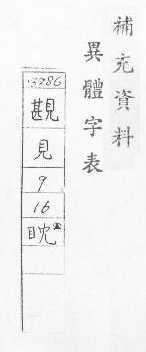 補充資料
異體字表
3786
見
9
16
眈